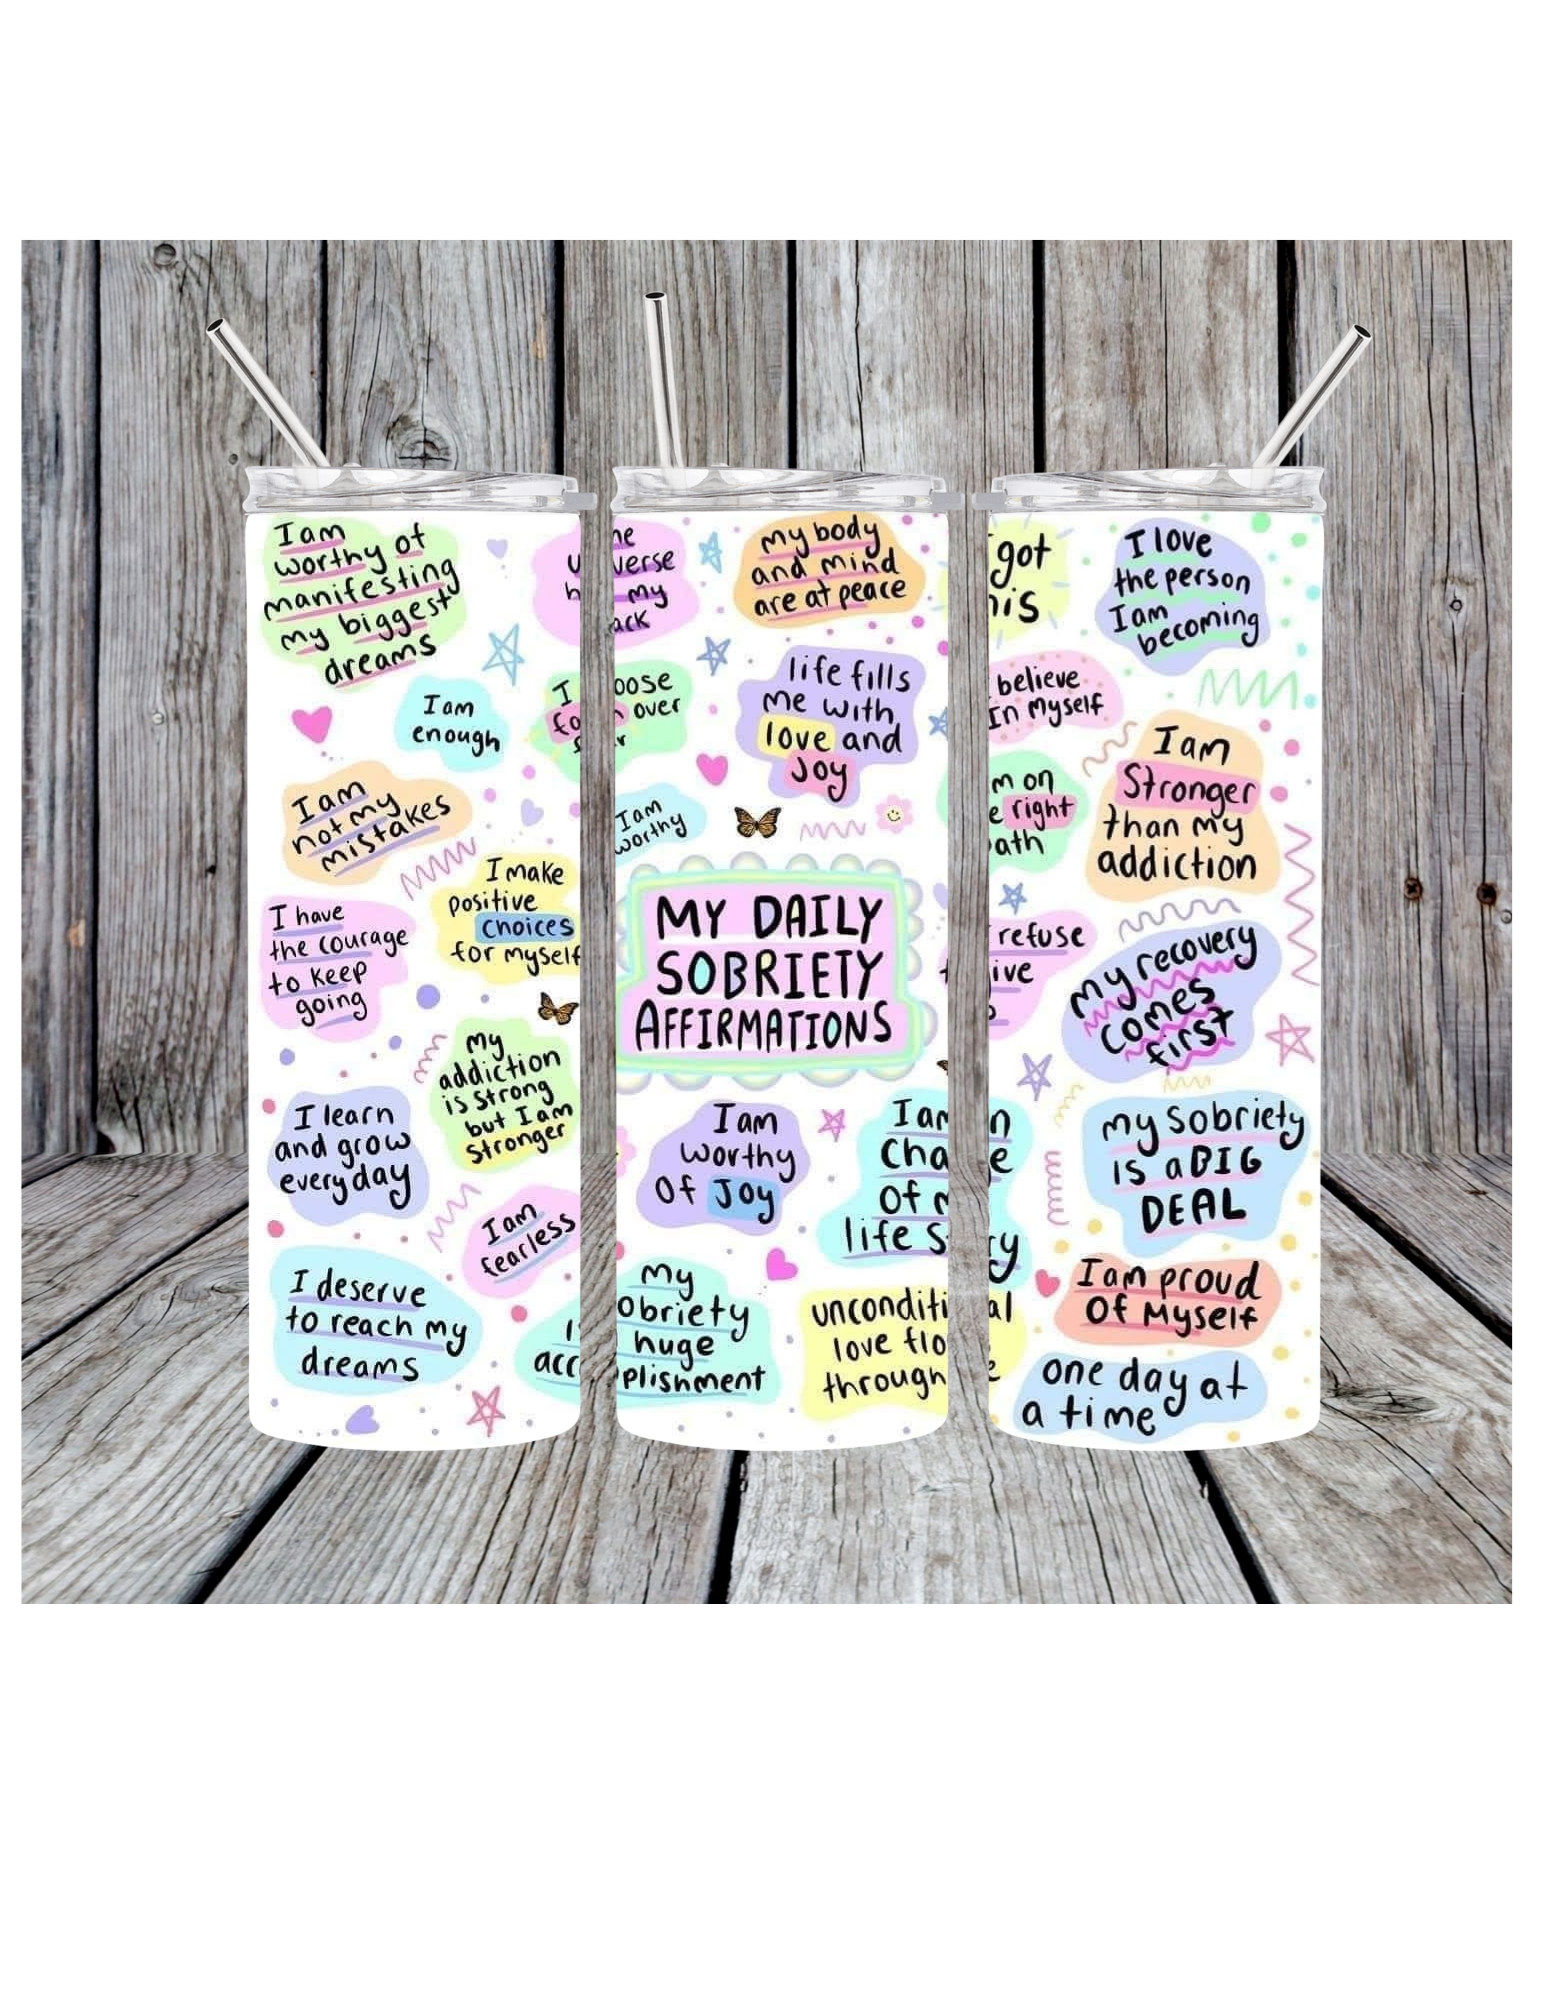 I am
worthy of
manifesting
my biggest
dreams
I am
enough
I am
not my
mistakes
I make
positive
choices
for myself
I have
the courage
to keep
going
my
addiction
is strong
but I am
stronger
I learn
and grow
everyday
I am
fearless
I deserve
to reach my
dreams
my
my body
and mind
are at peace
over
life fills
me with
love and
Joy
I am
worthy
MY DAILY
SOBRIETY
AFFIRMATIONS
I am
worthy
Of Joy
I am
Of
life
My
huge
love
through
got
I love
the person
I am
becoming
believe
In Myself
I am
Stronger
than my
addiction
on
right
refuse
my recovery
comes
first
my sobriety
is a BIG
DEAL
I am proud
Of Myself
one day at
a time